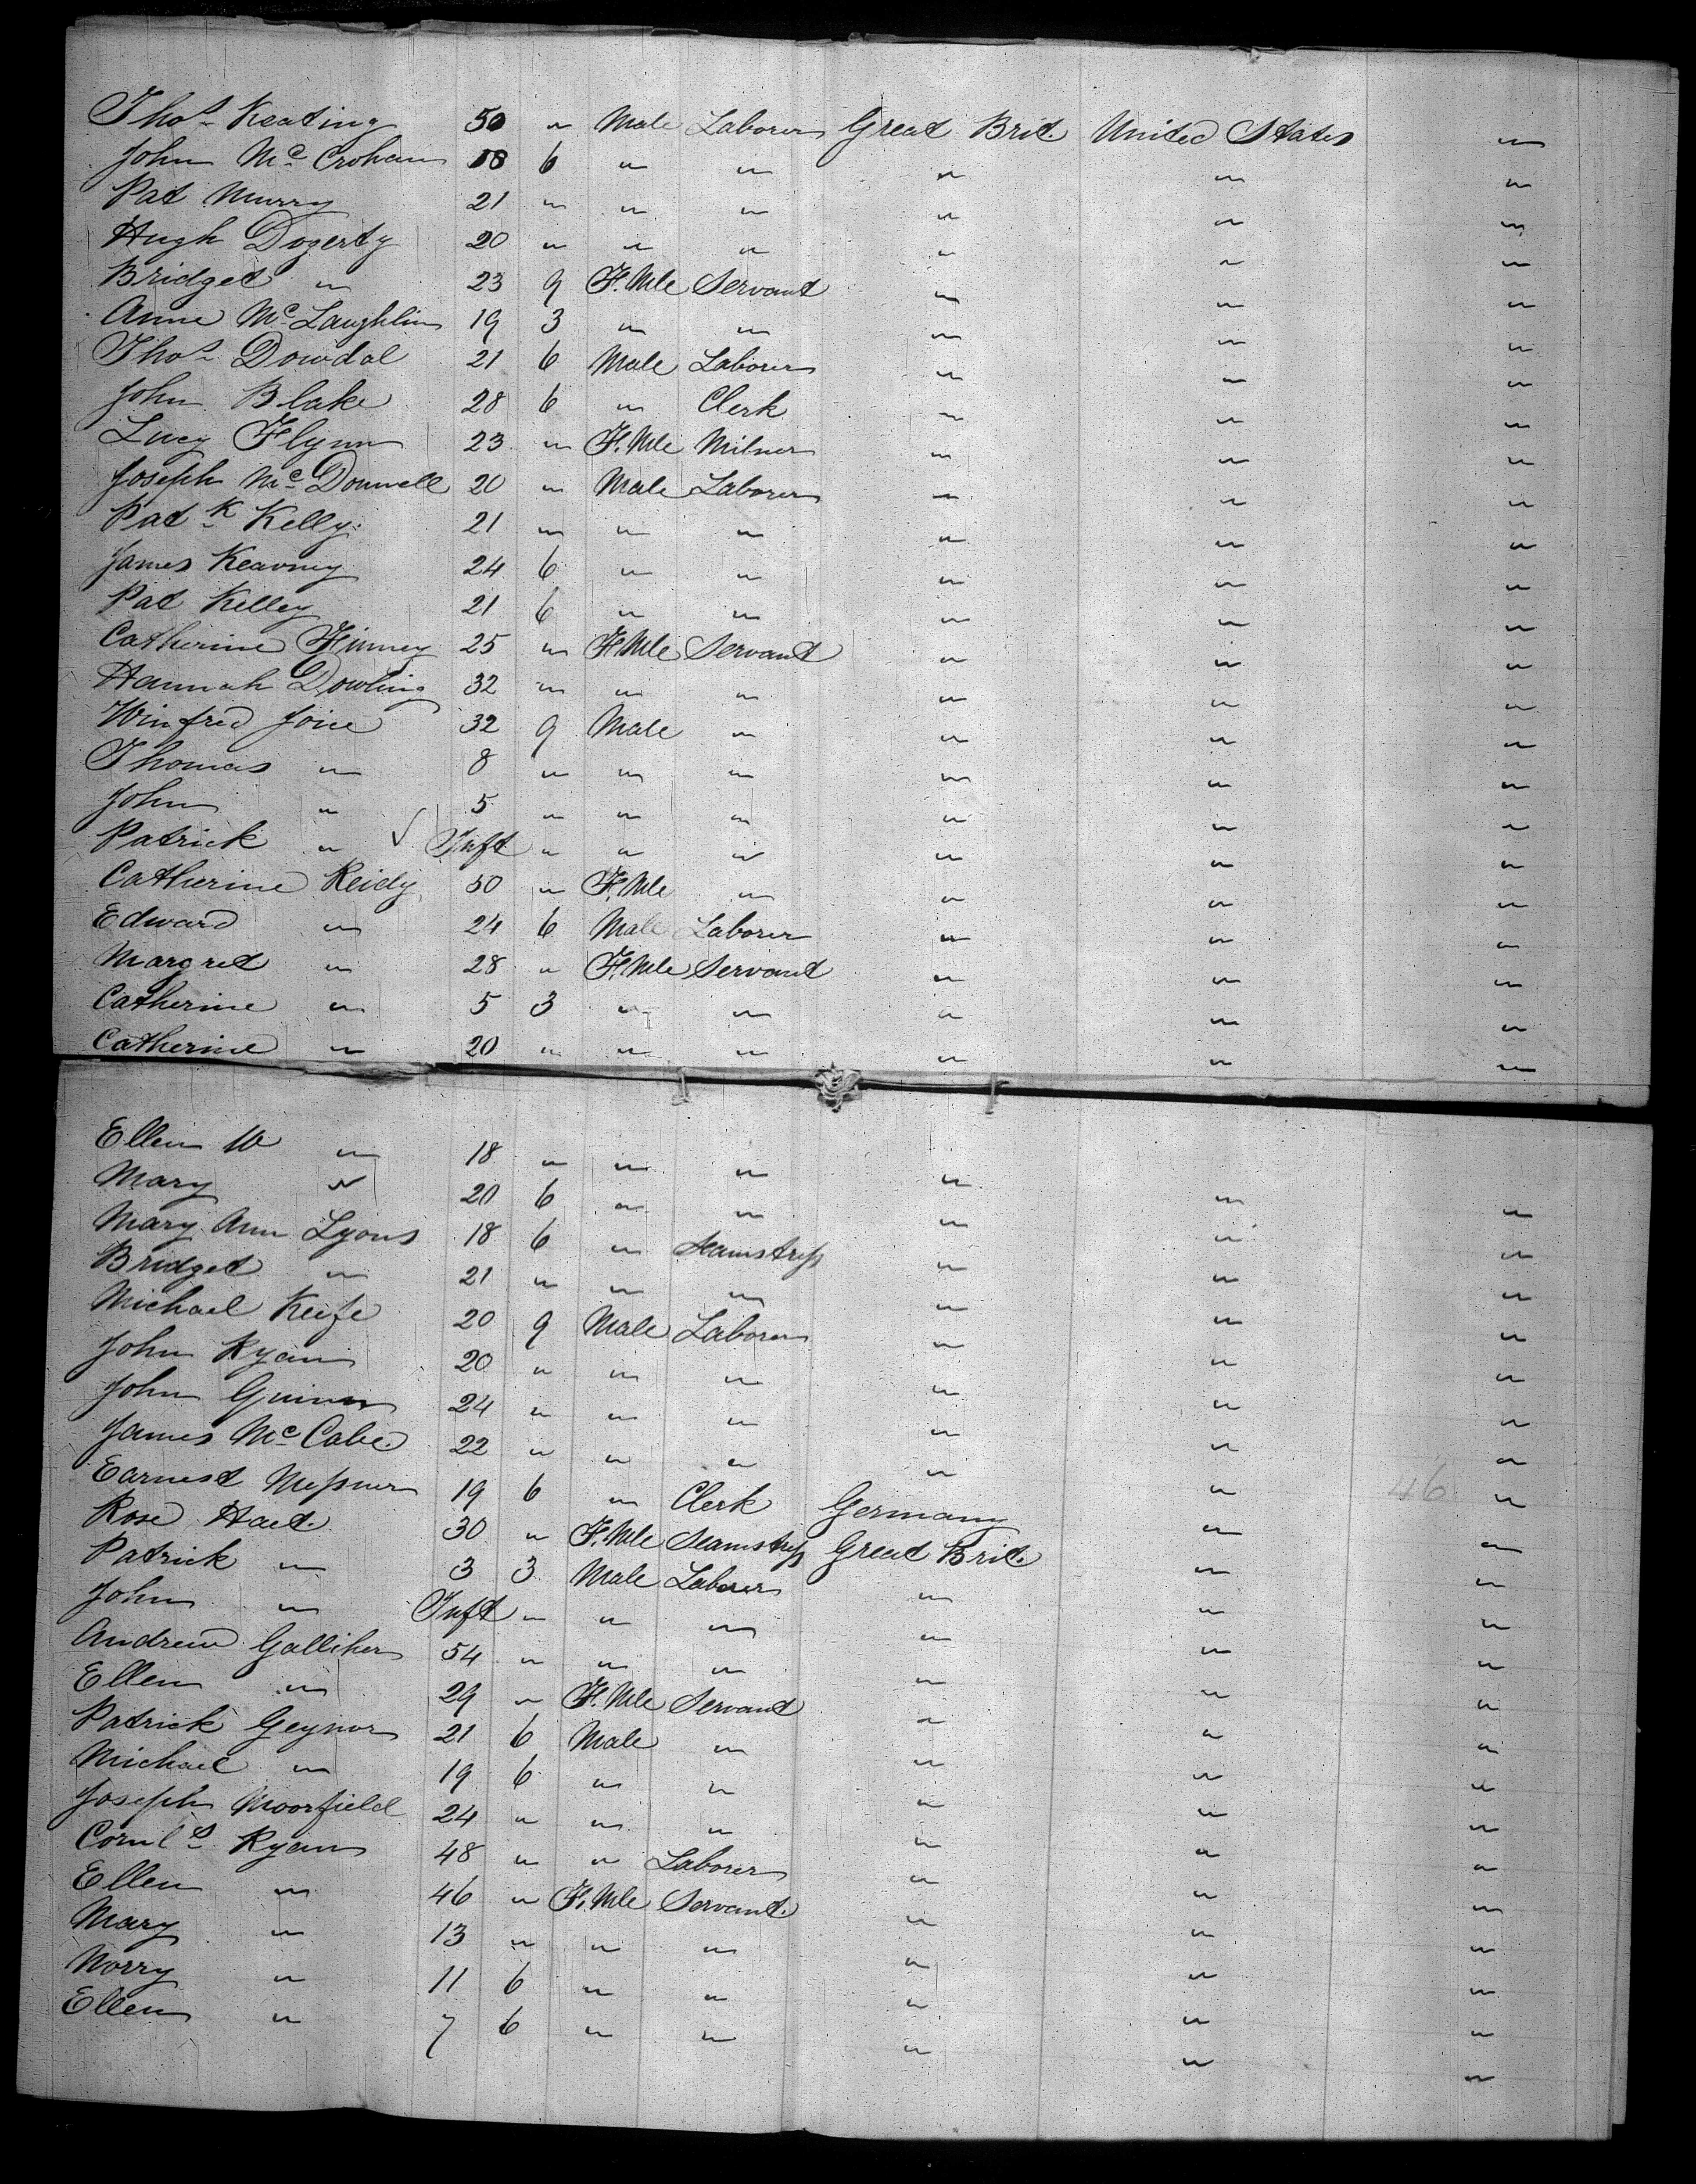 Thos Keating 50 " Male Laborer Great Brit. United States "
John McCrohan 18 6 " " " " "
Pat Murry 21 " " " " " "
Hugh Dogerty 20 " " " " " "
Bridget " 23 9 F.Mle Servant " " "
Anne McLaughlin 19 3 " " " " "
Thos Dowdal 21 6 Male Laborer " " "
John Blake 28 6 " Clerk " " "
Lucy Flynn 23 " F.Mle Milner " " "
Joseph McDonnell 20 " Male Laborer " " "
Patk Kelly 21 " " " " " "
James Kearney 24 6 " " " " "
Pat Kelley 21 6 " " " " "
Catherine Finney 25 " F.Mle Servant " " "
Hannah Dowling 32 " " " " " "
Winfred Joice 32 9 Male " " " "
Thomas " 8 " " " " " "
John " 5 " " " " " "
Patrick " √ Inft " " " " " "
Catherine Reidy 50 " F.Mle " " " "
Edward " 24 6 Male Laborer " " "
Margret " 28 " F.Mle Servant " " "
Catherine " 5 3 " " " " "
Catherine " 20 " " " " " "
Ellen W " 18 " " " " " "
Mary " 20 6 " " " " "
Mary Ann Lyons 18 6 " Seamstress " " "
Bridget " 21 " " " " " "
Michael Keife 20 9 Male Laborer " " "
John Ryan 20 " " " " " "
John Guinn 24 " " " " " "
James McCabe 22 " " " " " "
Earnest Messner 19 6 " Clerk Germany " 46 "
Rose Hart 30 " F.Mle Seamstress Great Brit. " "
Patrick " 3 3 Male Laborer " " "
John " Inft " " " " " "
Andrew Galliher 54 " " " " " "
Ellen " 29 " F.Mle Servant " " "
Patrick Geynor 21 6 Male " " " "
Michael " 19 6 " " " " "
Joseph Moorfield 24 " " " " " "
Cornls Ryan 48 " " Laborer " " "
Ellen " 46 " F.Mle Servant. " " "
Mary " 13 " " " " " "
Norry " 11 6 " " " " "
Ellen " 7 6 " " " " "